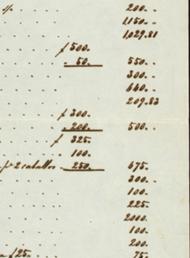 200.
1150.
1,029.81
ƒ 500.
50. 550.
300.
640.
209.83
ƒ 300.
200. 500.
ƒ 325.
100.
2 caballos 250. 675.
300.
100.
225.
2000.
100.
200.
ƒ 25. 75.